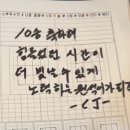 10승 축하해
힘들었던 시간이
더 빛날 수 있게
노력하는 원석이가 되길
- CJ -